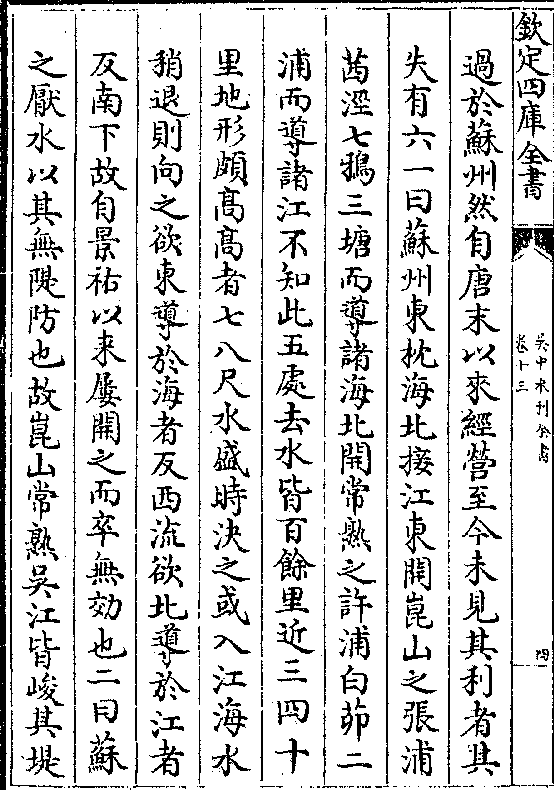 欽定四庫全書
吳中水利全書
卷十三
四
過於蘇州然自唐末以來經營至今未見其利者其
失有六一曰蘇州東枕海北接江東開崑山之張浦
茜涇七鴉三塘而導諸海北開常熟之許浦白茆二
浦而導諸江不知此五處去水皆百餘里近三四十
里地形頗高高者七八尺水盛時決之或入江海水
稍退則向之欲東導於海者反西流欲北導於江者
反南下故自景祐以来屢開之而卒無効也二曰蘇
之厭水以其無隄防也故崑山常熟吳江皆峻其堤